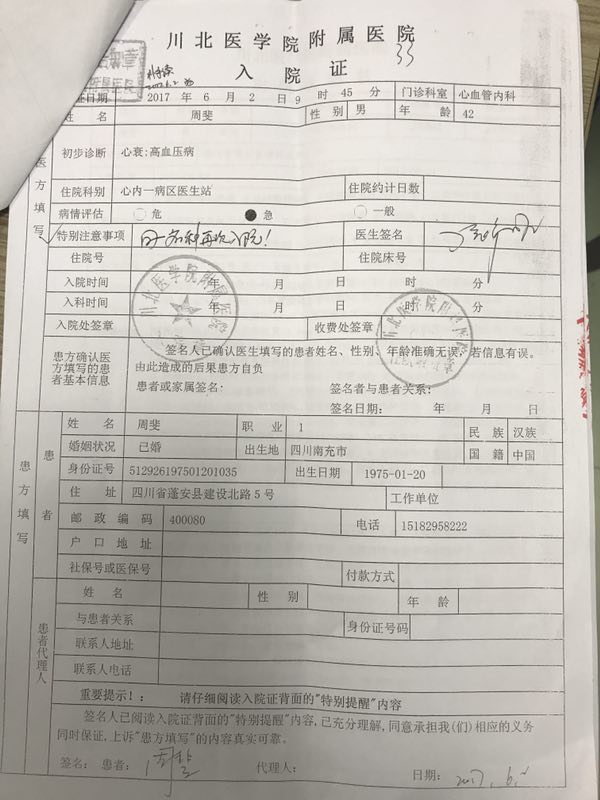 川北医学院附属医院
33
入院证
证日期 2017 年 6 月 2 日 9 时 45 分 门诊科室 心血管内科
姓名 周斐 性别 男 年龄 42
医方填写
初步诊断 心衰;高血压病
住院科别 心内一病区医生站 住院约计日数
病情评估 危 急 一般
特别注意事项 再次入院! 医生签名
住院号 住院床号
入院时间 年 月 日 时 分
入科时间 年 月 日 时 分
入院处签章 收费处签章
川北医学院附属医院
川北医学院附属医院
患方确认医方填写的患者基本信息
签名人已确认医生填写的患者姓名、性别、年龄准确无误,若信息有误。
由此造成的后果患方自负
患者或家属签名: 签名者与患者关系:
签名日期: 年 月 日
患方填写
患者
姓名 周斐 职业 1 民族 汉族
婚姻状况 已婚 出生地 四川南充市 国籍 中国
身份证号 512926197501201035 出生日期 1975-01-20
住址 四川省蓬安县建设北路5号 工作单位
邮政编码 400080 电话 15182958222
户口地址
社保号或医保号 付款方式
患者代理人
姓名 性别 年龄
与患者关系 身份证号码
联系人地址
联系人电话
重要提示!: 请仔细阅读入院证背面的"特别提醒"内容
签名人已阅读入院证背面的"特别提醒"内容,已充分理解,同意承担我(们)相应的义务
同时保证,上诉"患方填写"的内容真实可靠。
签名: 患者: 周斐 代理人: 日期: 2017.6.2